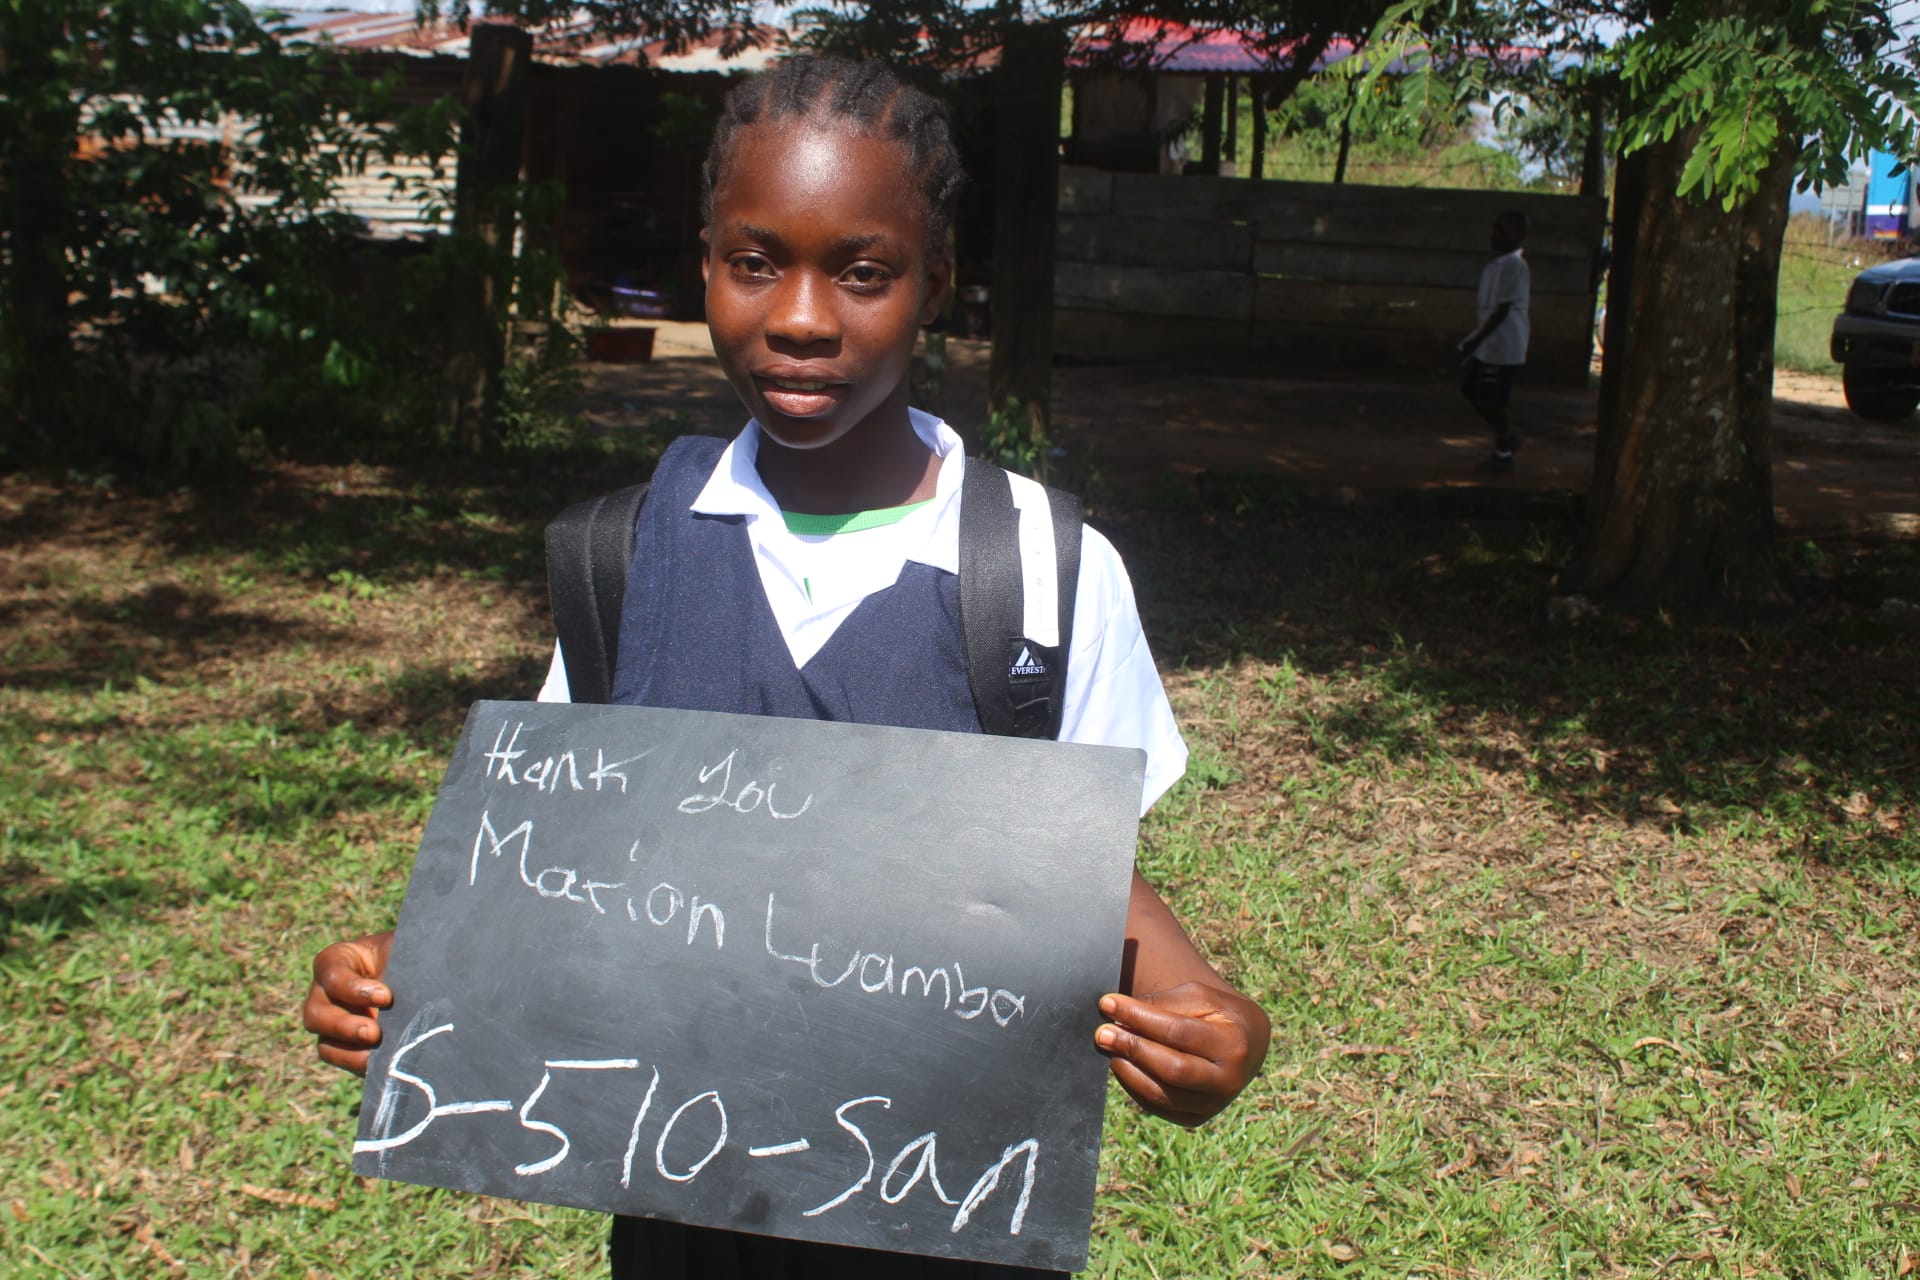 thank you
Marion Luamba
S-510-San
EVEREST